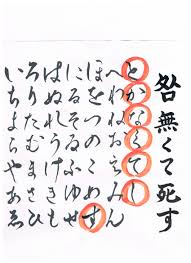 咎無くて死す
いろはにほへと
ちりぬるをわか
よたれそつねな
らむうゐのおく
やまけふこえて
あさきゆめみし
ゑひもせす